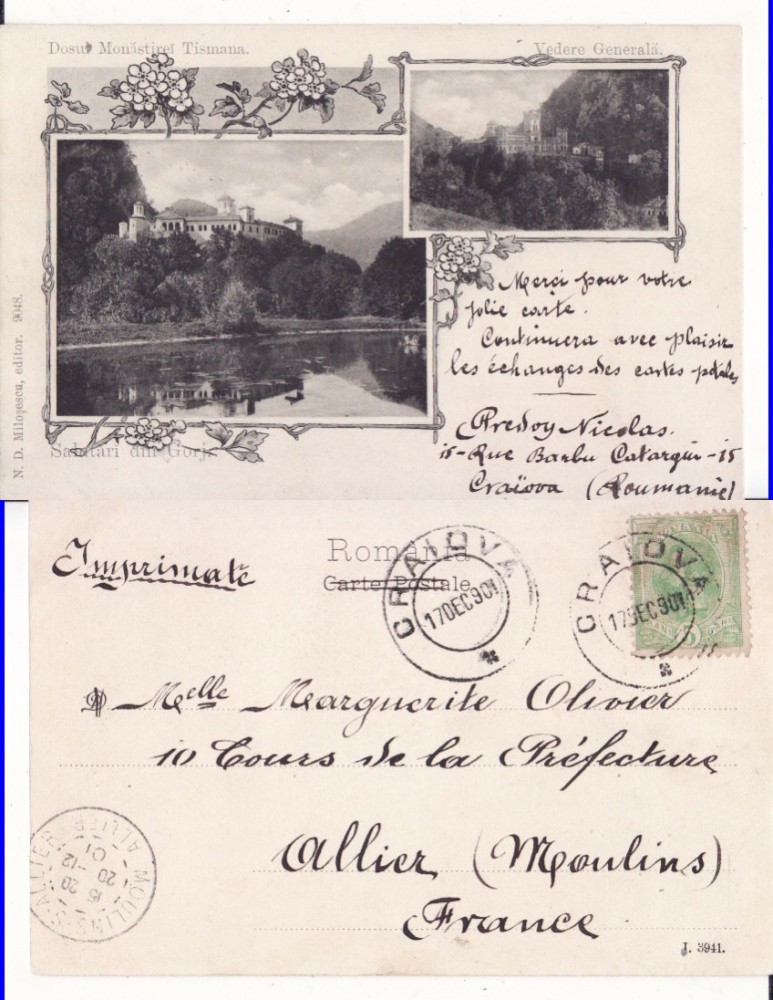 Dosul Monăstireĭ Tismana.
Vedere Generală.
N. D. Miloşescu, editor. 9048.
Salutări din Gorj
Merçi pour votre
jolie carte.
Continuera avec plaisir
les échanges des cartes potales
Predoy Nicolas.
15-Rue Barbu Catargiu-15
Craïova (Roumanie)
Imprimate
România
Carte Postale
CRAIOVA
17DEC901
CRAIOVA
17DEC901
5
Melle Marguerite Olivier
10 Cours de la Préfecture
Allier (Moulins)
France
MOULINS-S-ALLIER
ALLIER
15 20
20-12
01
J. 3941.